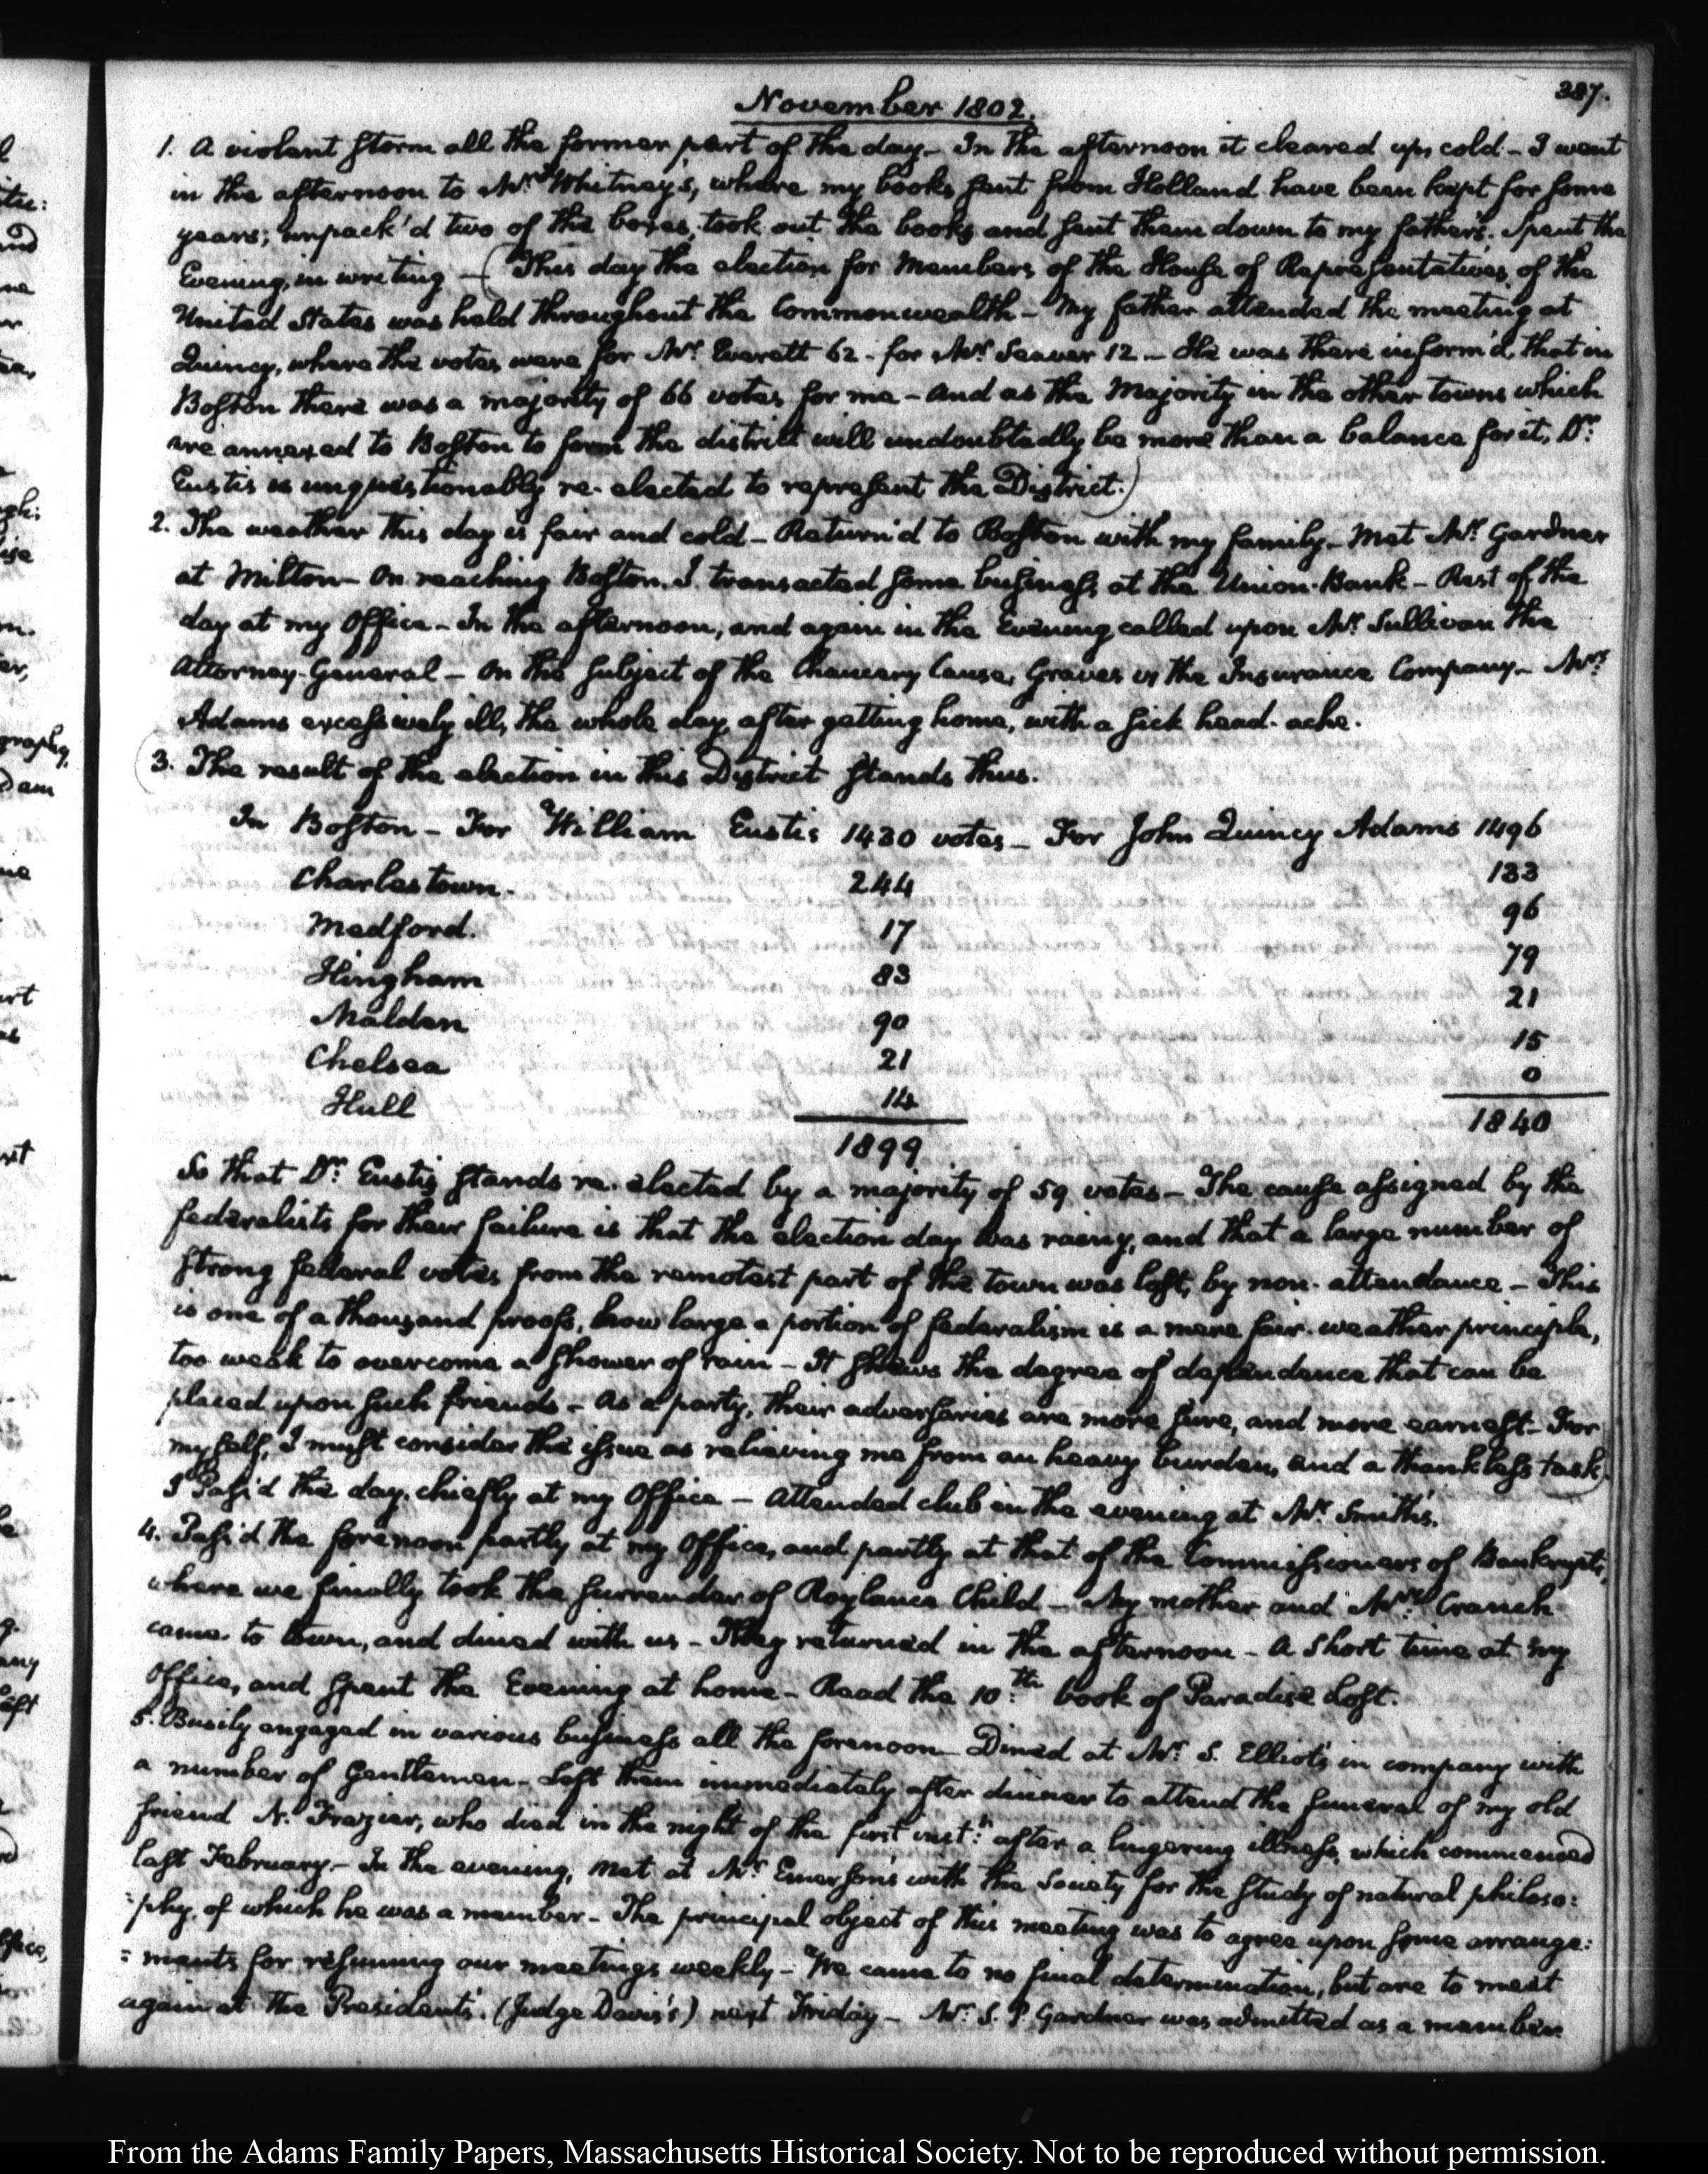 November 1802.
337.
1. A violent storm all the former part of the day – In the afternoon it cleared up, cold – I went
in the afternoon to Mr. Whitney's, where my books sent from Holland have been kept for some
years; unpack'd two of the boxes, took out the books and sent them down to my father's. Spent the
Evening, in writing – (This day the election for Members of the House of Representatives of the
United States was held throughout the Commonwealth – My father attended the meeting at
Quincy, where the votes were for Mr. Everett 62 – for Mr. Seaver 12 – He was there inform'd, that in
Boston there was a majority of 66 votes for me – And as the Majority in the other towns which
are annexed to Boston to form the district will undoubtedly be more than a balance for it, Dr.
Eustis is unquestionably re-elected to represent the District.)
2. The weather this day is fair and cold – Return'd to Boston with my family – Met Mr. Gardner
at Milton – On reaching Boston I transacted some business at the Union-Bank – Rest of the
day at my Office – In the afternoon, and again in the Evening called upon Mr. Sullivan the
Attorney-General – On the subject of the Chancery Cause, Graves vs the Insurance Company – Mrs.
Adams excessively ill, the whole day, after getting home, with a sick head-ache.
(3. The result of the election in this District stands thus.
In Boston – For William Eustis 1430 votes – For John Quincy Adams 1496
Charlestown. 244 133
Medford. 17 96
Hingham 83 79
Malden 90 21
Chelsea 21 15
Hull 14 0
1899 1840
So that Dr. Eustis stands re-elected by a majority of 59 votes – The cause assigned by the
federalists for their failure is that the election day was rainy, and that a large number of
strong federal votes from the remotest part of the town was lost, by non-attendance – This
is one of a thousand proofs, how large a portion of federalism is a mere fair-weather principle,
too weak to overcome a shower of rain – It shews the degree of dependance that can be
placed upon such friends – As a party, their adversaries are more sure, and more earnest – For
myself, I must consider the issue as relieving me from an heavy burden, and a thankless task.)
I Pass'd the day, chiefly at my Office – Attended club in the evening at Mr. Smith's.
4. Pass'd the forenoon partly at my Office, and partly at that of the Commissioners of Bankrupts,
where we finally took the surrender of Roylance Child – My mother and Mrs. Cranch
came to town, and dined with us – They returned in the afternoon – A short time at my
Office, and spent the Evening at home – Read the 10th. book of Paradise Lost.
5. Busily engaged in various business all the forenoon – Dined at Mr. S. Elliot's in company with
a number of Gentlemen – Left them immediately after dinner to attend the funeral of my old
friend N. Frazier, who died in the night of the first inst: after a lingering illness, which commenced
last February – In the evening, met at Mr. Emerson's with the Society for the study of natural philoso:
:phy, of which he was a member – The principal object of this meeting was to agree upon some arrange:
:ments for resuming our meetings weekly – We came to no final determination, but are to meet
again at the President's. (Judge Davis's) next Friday – Mr. S. P. Gardner was admitted as a member
From the Adams Family Papers, Massachusetts Historical Society. Not to be reproduced without permission.